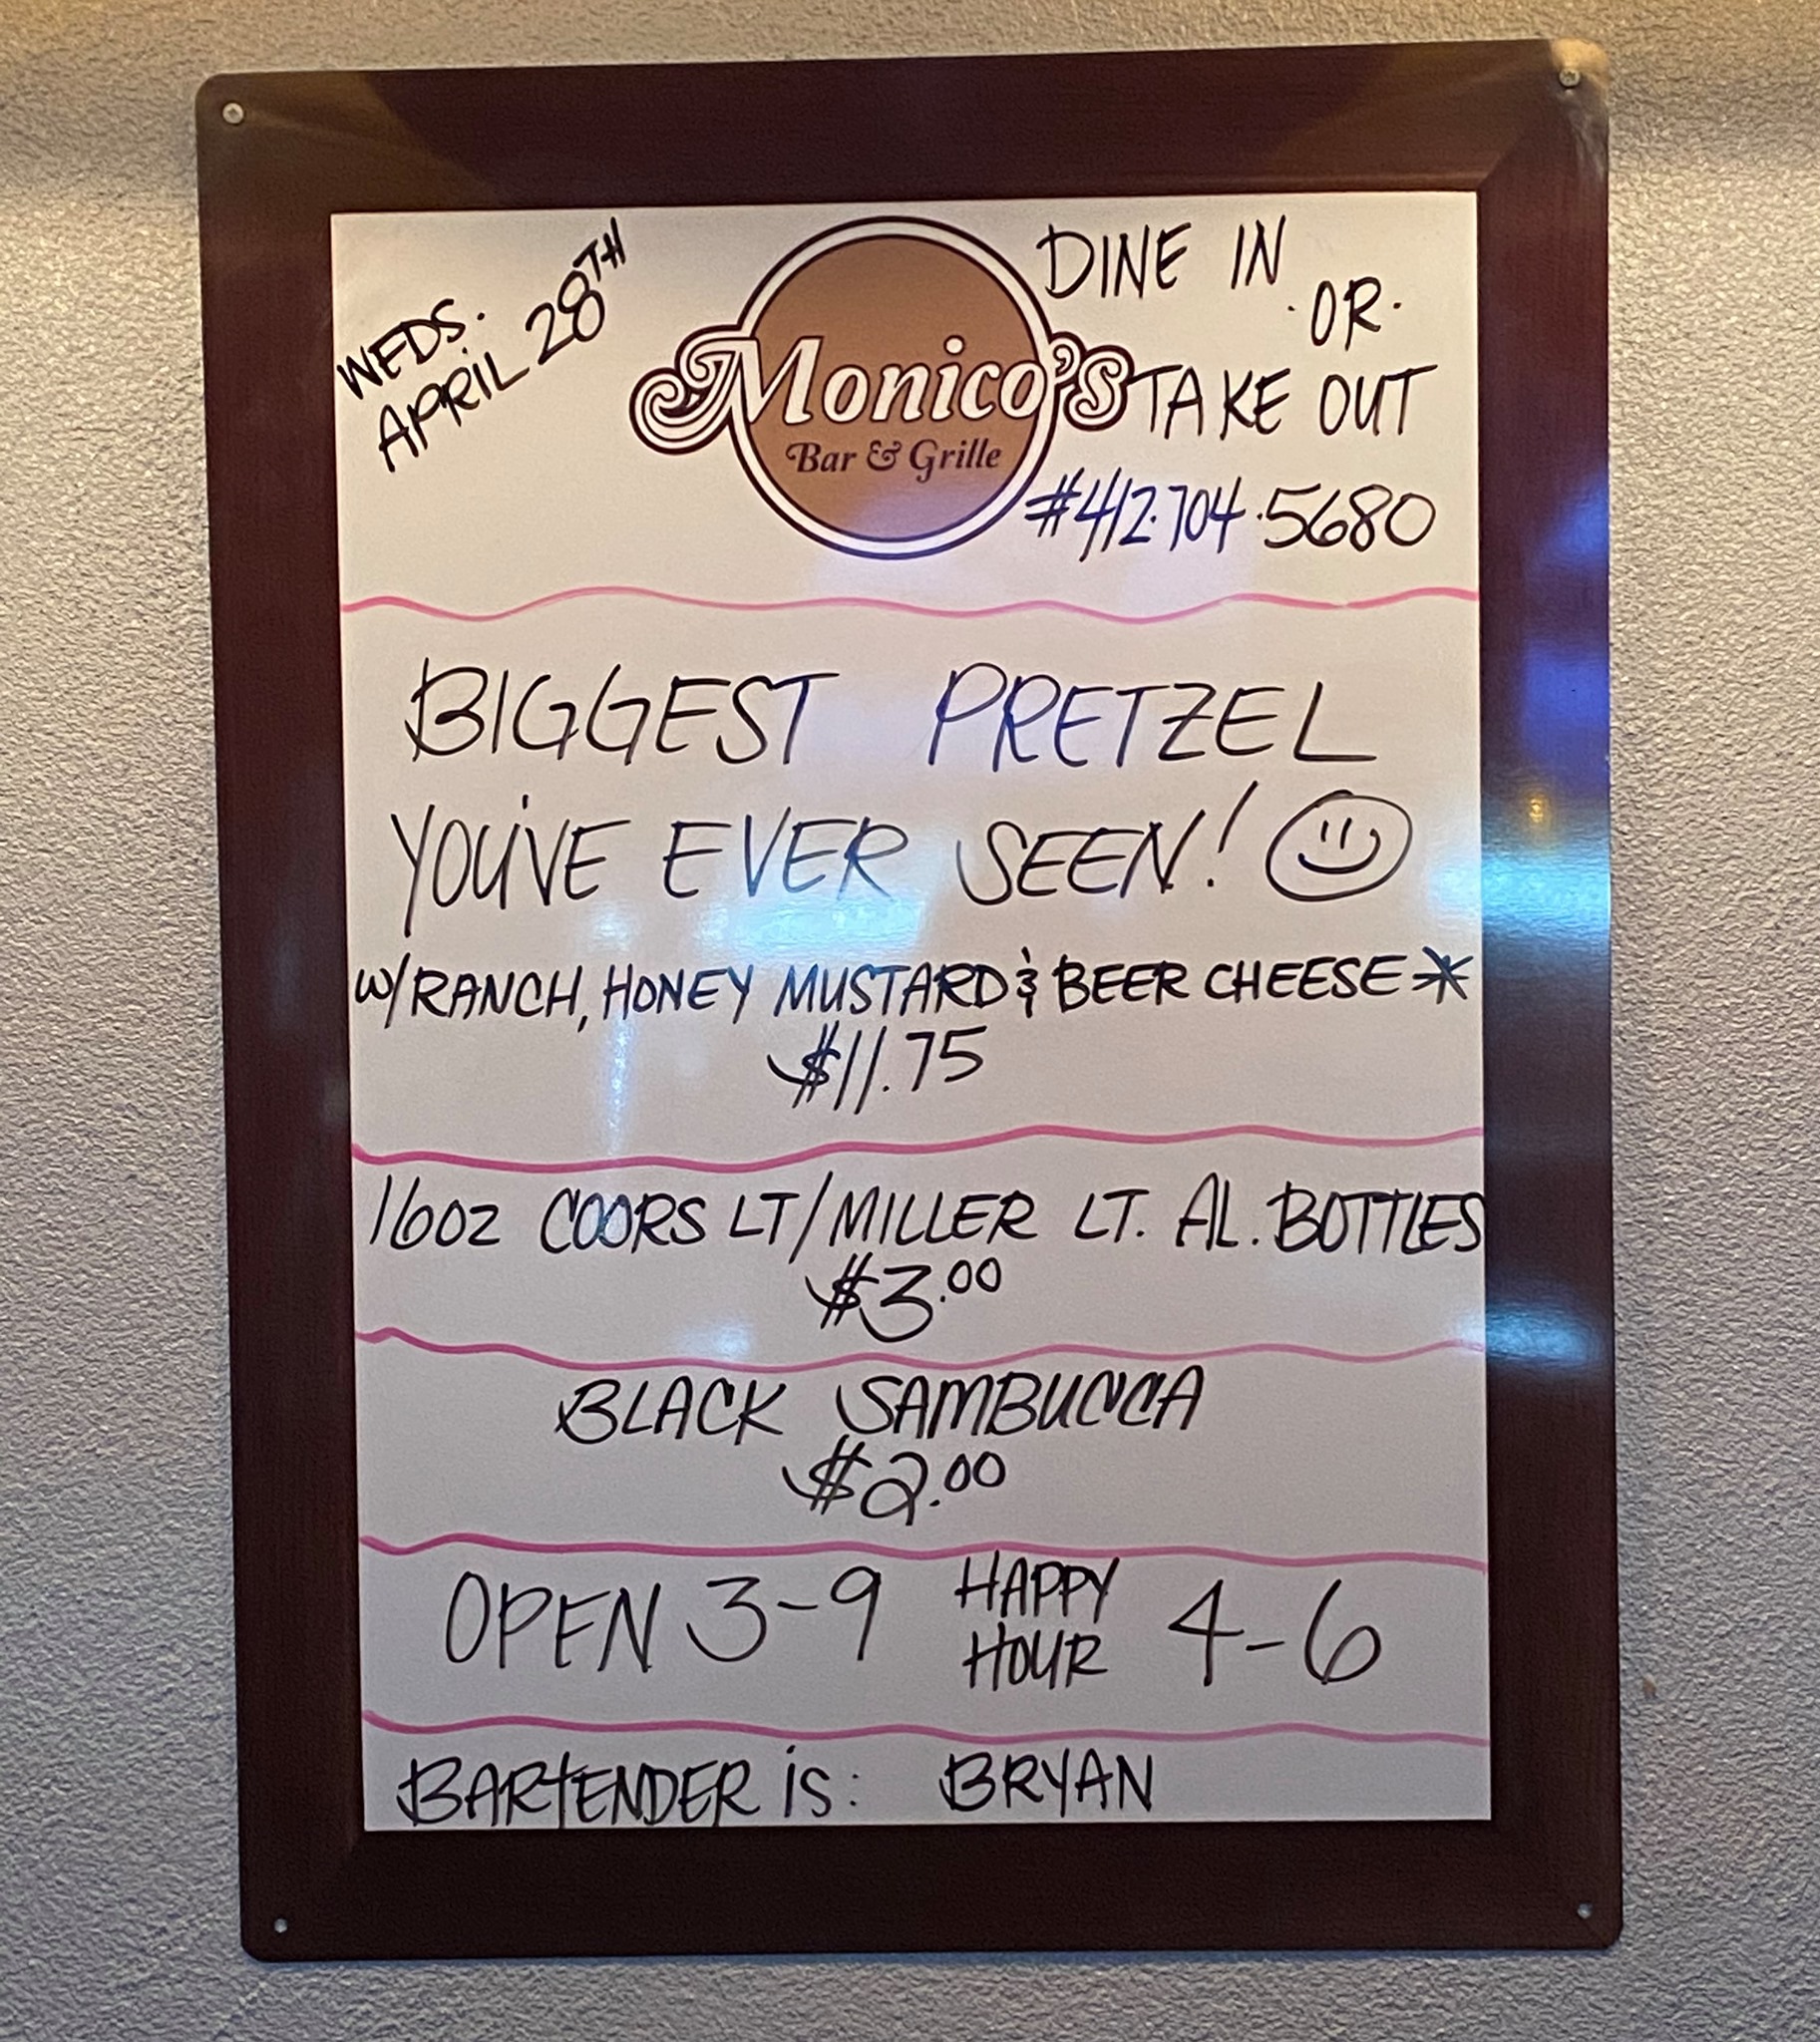 WEDS.
APRIL 28TH
Monico's
Bar & Grille
DINE IN
·OR·
TAKE OUT
#412·704·5680
BIGGEST PRETZEL
YOU'VE EVER SEEN!
W/RANCH, HONEY MUSTARD & BEER CHEESE*
$11.75
16OZ COORS LT/MILLER LT. AL. BOTTLES
$3.00
BLACK SAMBUCCA
$2.00
OPEN 3-9 HAPPY HOUR 4-6
BARTENDER iS: BRYAN